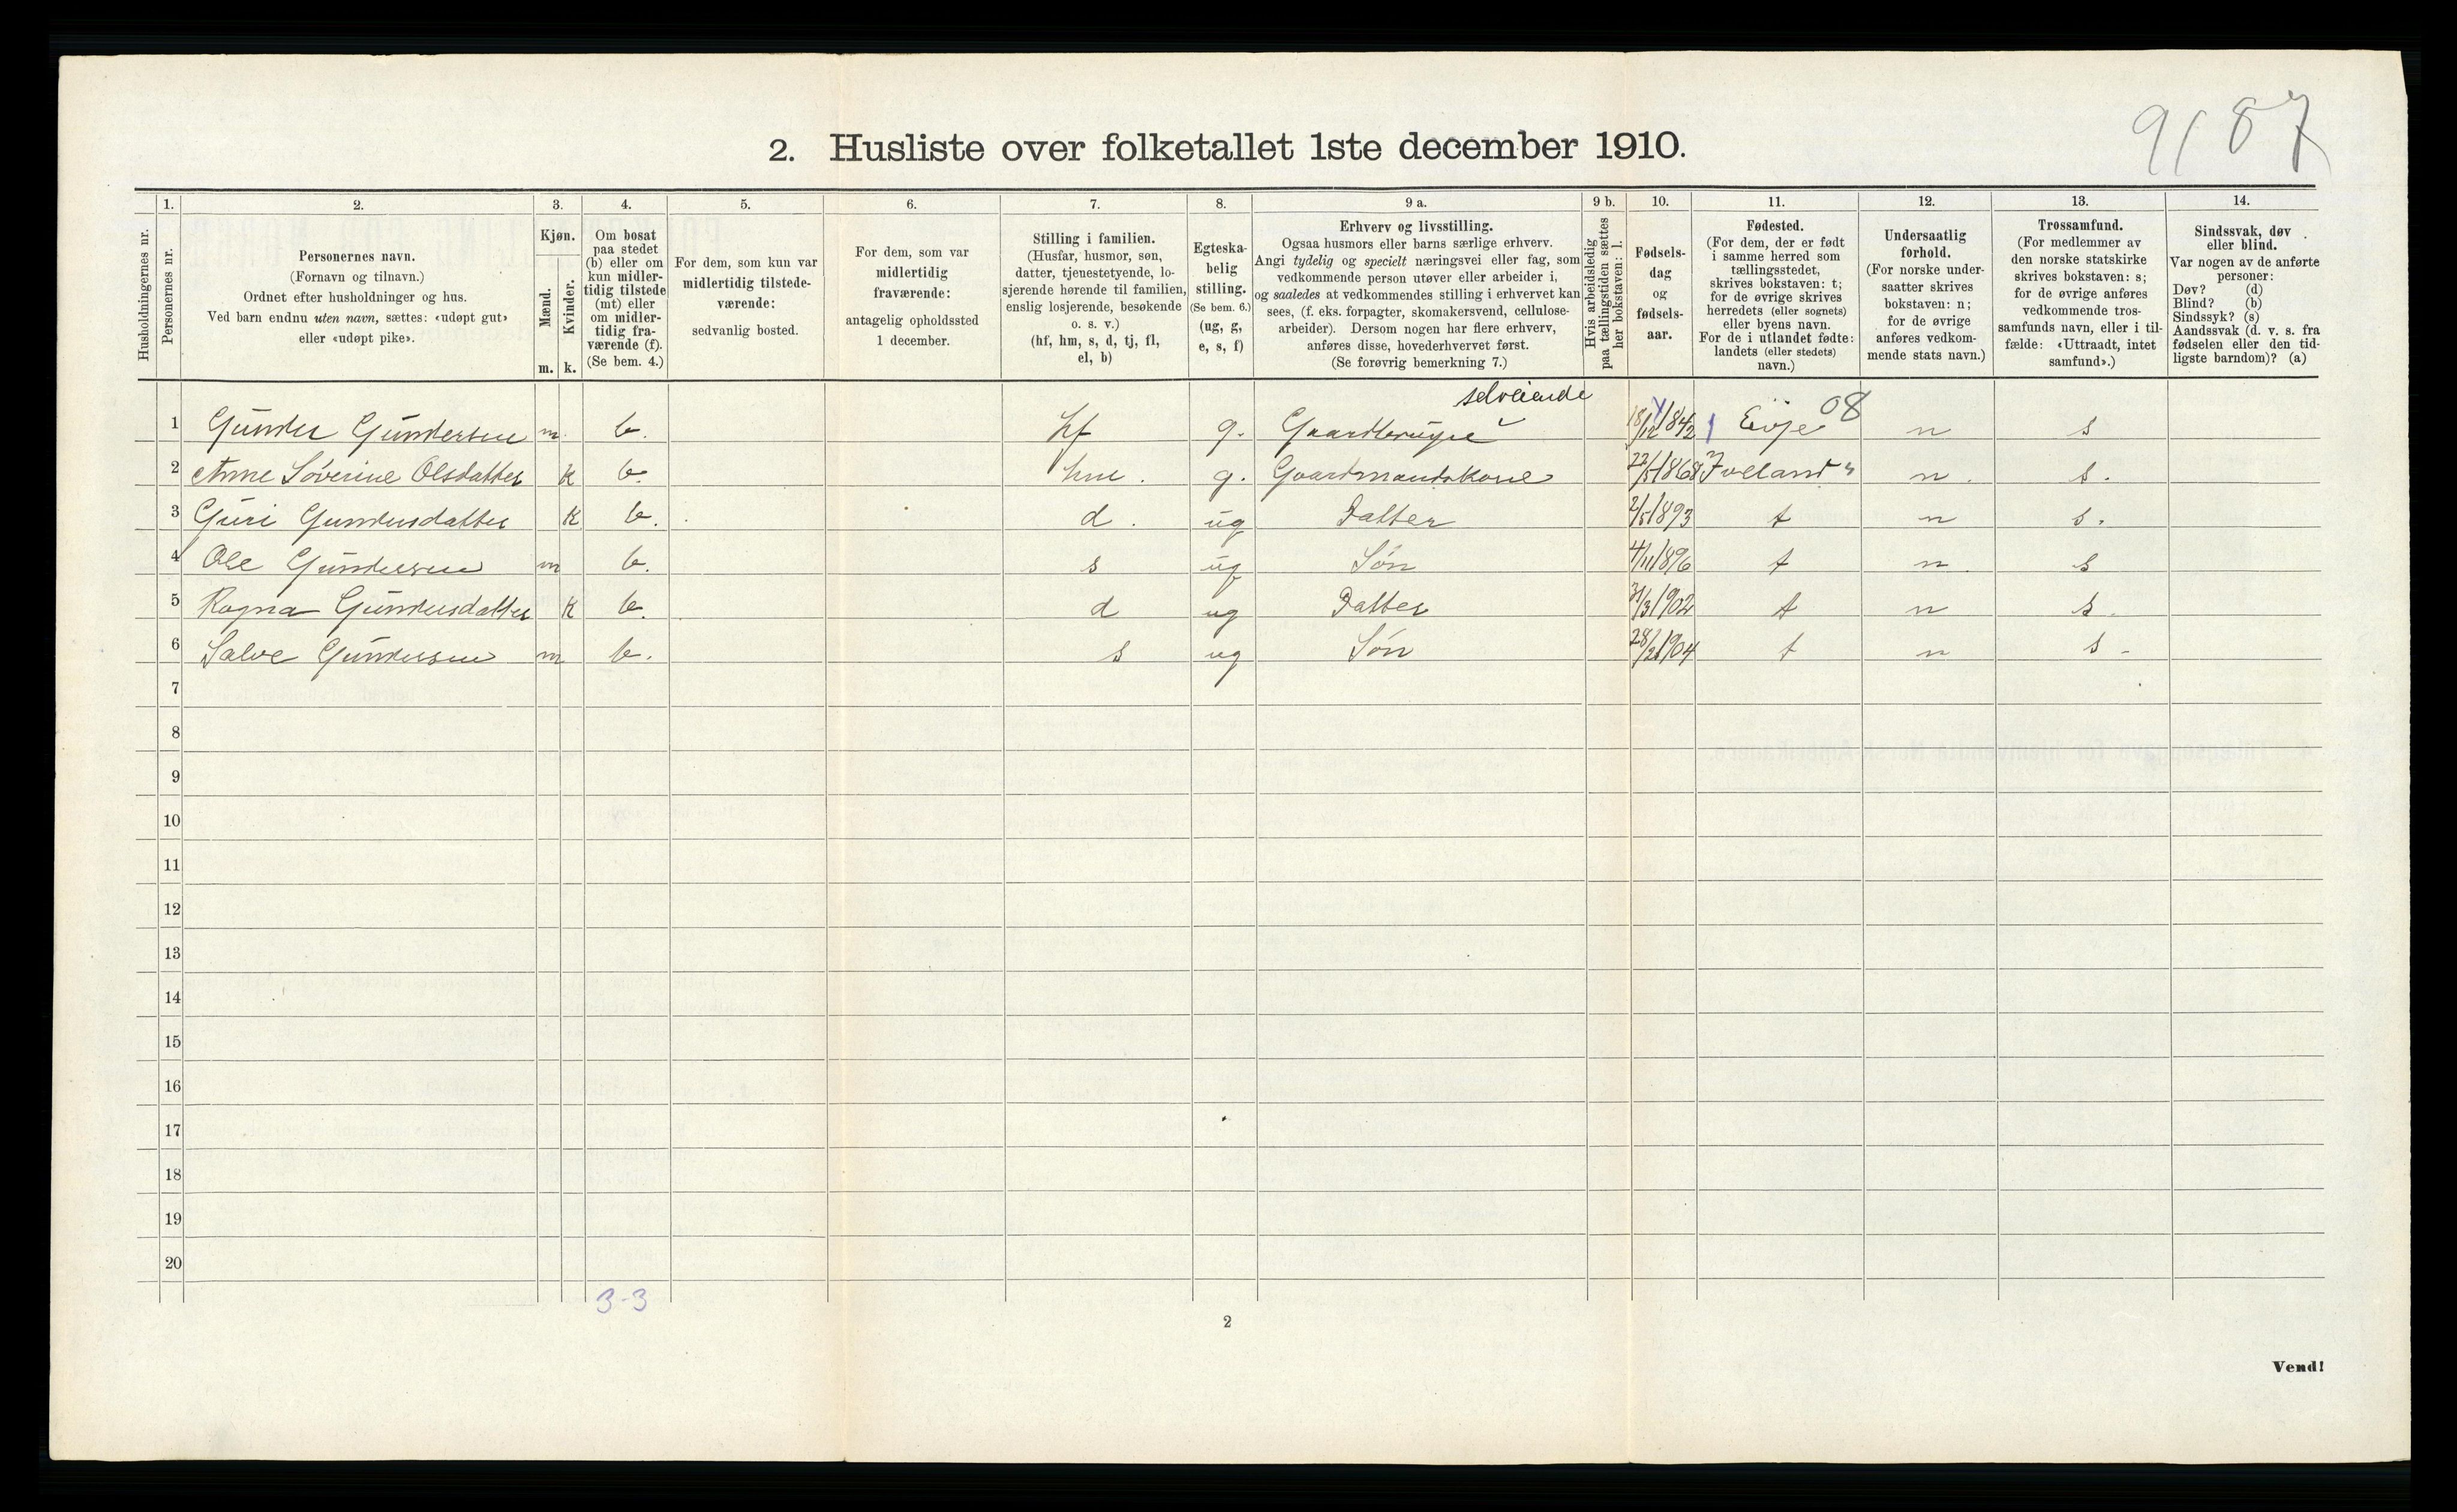 9187
2. Husliste over folketallet 1ste december 1910.
Husholdningernes nr.
1.
Personernes nr.
2.
Personernes navn.
(Fornavn og tilnavn.)
Ordnet efter husholdninger og hus.
Ved barn endnu uten navn, sættes: «udøpt gut»
eller «udøpt pike».
3.
Kjøn.
Mænd.
Kvinder.
m. k.
4.
Om bosat
paa stedet
(b) eller om
kun midler-
tidig tilstede
(mt) eller
om midler-
tidig fra-
værende (f).
(Se bem. 4.)
5.
For dem, som kun var
midlertidig tilstede-
værende:
sedvanlig bosted.
6.
For dem, som var
midlertidig
fraværende:
antagelig opholdssted
1 december.
7.
Stilling i familien.
(Husfar, husmor, søn,
datter, tjenestetyende, lo-
sjerende hørende til familien,
enslig losjerende, besøkende
o. s. v.)
(hf, hm, s, d, tj, fl,
el, b)
8.
Egteska-
belig
stilling.
(Se bem. 6.)
(ug, g,
e, s, f)
9 a.
Erhverv og livsstilling.
Ogsaa husmors eller barns særlige erhverv.
Angi tydelig og specielt næringsvei eller fag, som
vedkommende person utøver eller arbeider i,
og saaledes at vedkommendes stilling i erhvervet kan
sees, (f. eks. forpagter, skomakersvend, cellulose-
arbeider). Dersom nogen har flere erhverv,
anføres disse, hovederhvervet først.
(Se forøvrig bemerkning 7.)
9 b.
Hvis arbeidsledig
paa tællingstiden sættes
her bokstaven: l.
10.
Fødsels-
dag
og
fødsels-
aar.
11.
Fødested.
(For dem, der er født
i samme herred som
tællingsstedet,
skrives bokstaven: t;
for de øvrige skrives
herredets (eller sognets)
eller byens navn.
For de i utlandet fødte:
landets (eller stedets)
navn.)
12.
Undersaatlig
forhold.
(For norske under-
saatter skrives
bokstaven: n;
for de øvrige
anføres vedkom-
mende stats navn.)
13.
Trossamfund.
(For medlemmer av
den norske statskirke
skrives bokstaven: s;
for de øvrige anføres
vedkommende tros-
samfunds navn, eller i til-
fælde: «Uttraadt, intet
samfund».)
14.
Sindssvak, døv
eller blind.
Var nogen av de anførte
personer:
Døv? (d)
Blind? (b)
Sindssyk? (s)
Aandssvak (d. v. s. fra
fødselen eller den tid-
ligste barndom)? (a)
selveiende
1 Gunder Gundersen m. b. hf g. Gaardbruger 18/12 1842 Evje 08 n s
2 Anne Søverine Olsdatter k b. hm. g. Gaardmandskone 22/5 1868 Iveland n. s.
3 Guri Gundersdatter k b. d. ug Datter 2/5 1893 t n s.
4 Ole Gundersen m b. s ug Søn 4/11 1896 t n. s
5 Ragna Gundersdatter k b. d ug Datter 31/3 1902 t n s.
6 Salve Gundersen m b. s ug Søn 1904 t n s -
7
8
9
10
11
12
13
14
15
16
17
18
19
20
3-3
2
Vend!